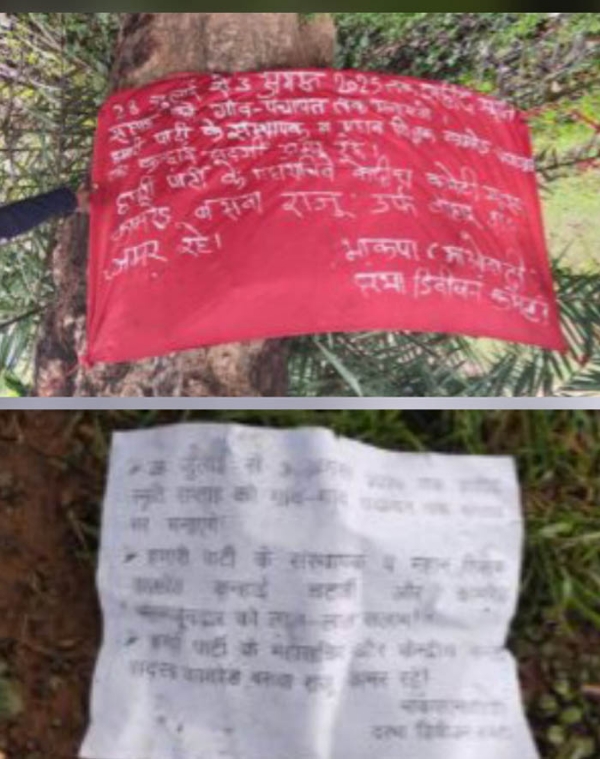 28 जुलाई से 3 अगस्त 2025 तक शहीद स्मृति
सप्ताह को गाँव-पंचायत तक मनायेंगे।
हमारी पार्टी के संस्थापक व महान शिक्षक कामरेड
अमर रहे।
हमारी पार्टी के महासचिव केंद्रीय कमेटी सदस्य
कामरेड बसवा राजू उर्फ
अमर रहे।
भाकपा (माओवादी)
दरभा डिवीजन कमेटी
28 जुलाई से 3 अगस्त तक शहीद
स्मृति सप्ताह को गांव-गांव पंचायत तक
पर मनाएंगे
हमारी पार्टी के संस्थापक व महान शिक्षक
कामरेड कन्हाई चटर्जी और कामरेड
को लाल-लाल सलाम!
हमारी पार्टी के महासचिव और केन्द्रीय कमेटी
सदस्य कामरेड बसवा राजू अमर रहे!
दरभा डिवीजन कमेटी